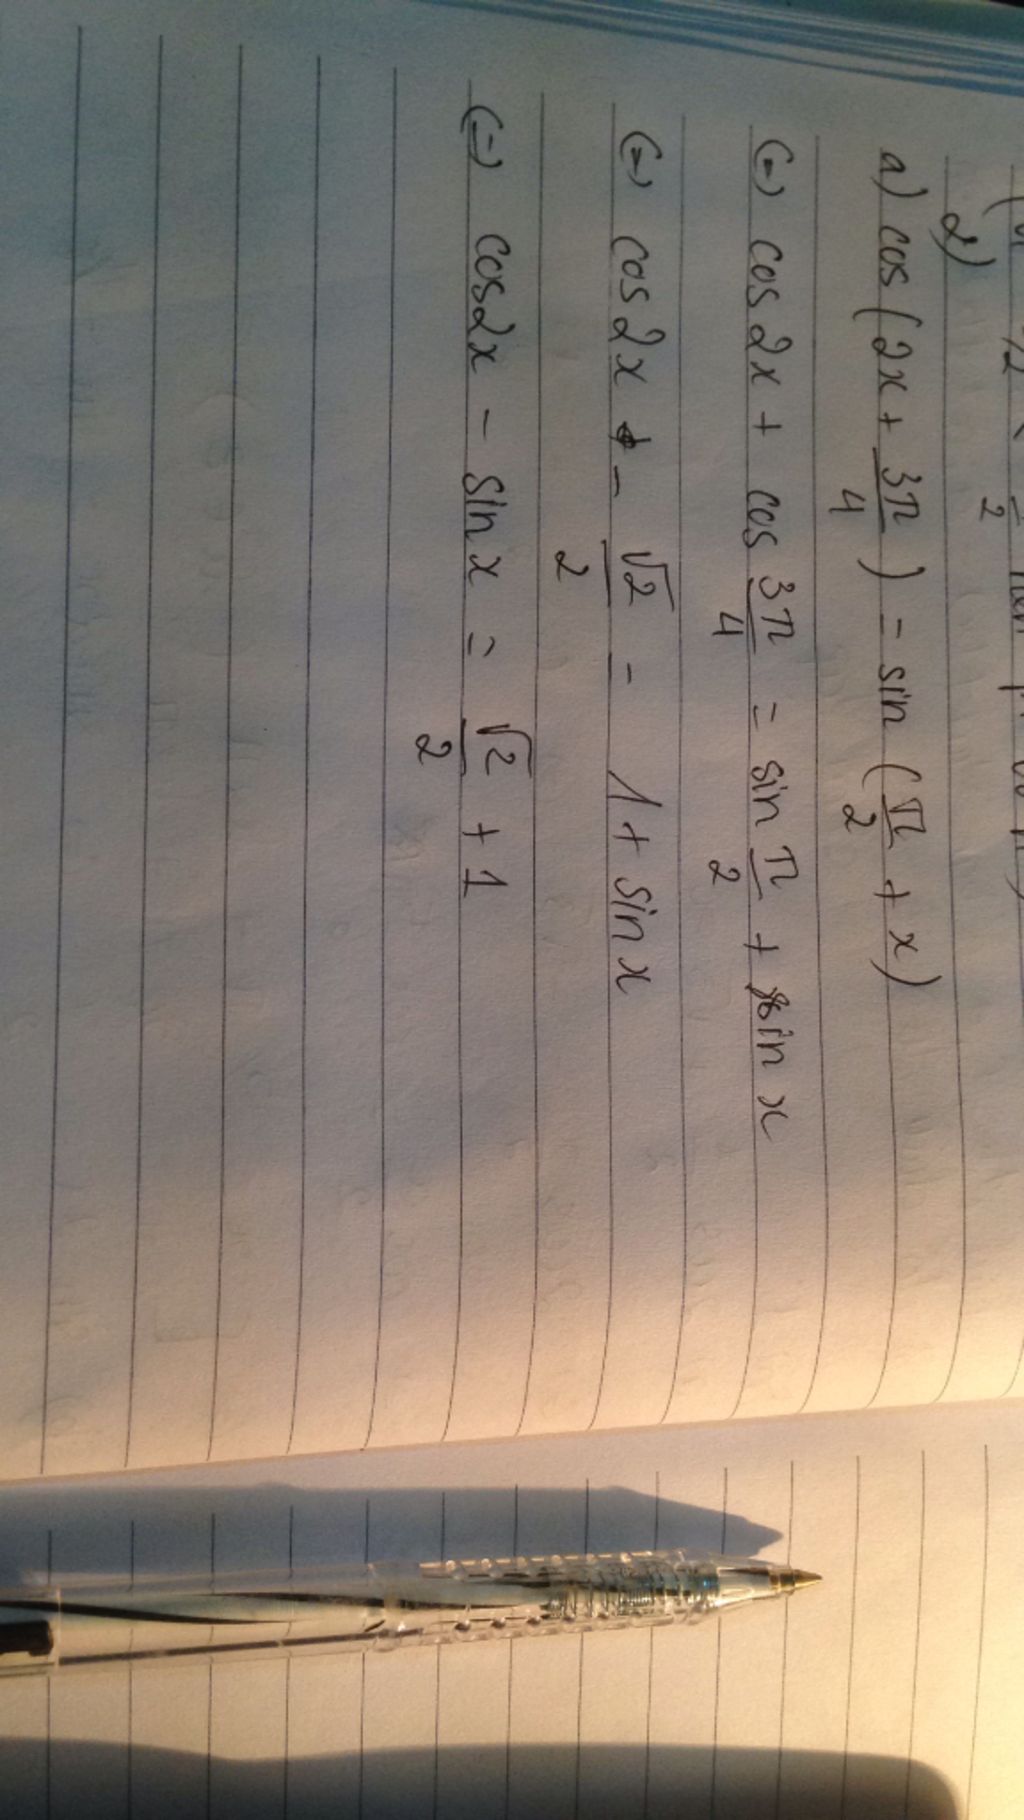 2)
a) cos(2x + 3π/4) = sin(π/2 + x)
(=) cos2x + cos 3π/4 = sin π/2 + sin x
(=) cos2x - √2/2 - 1 + sin x
(=) cos2x - sin x = √2/2 + 1